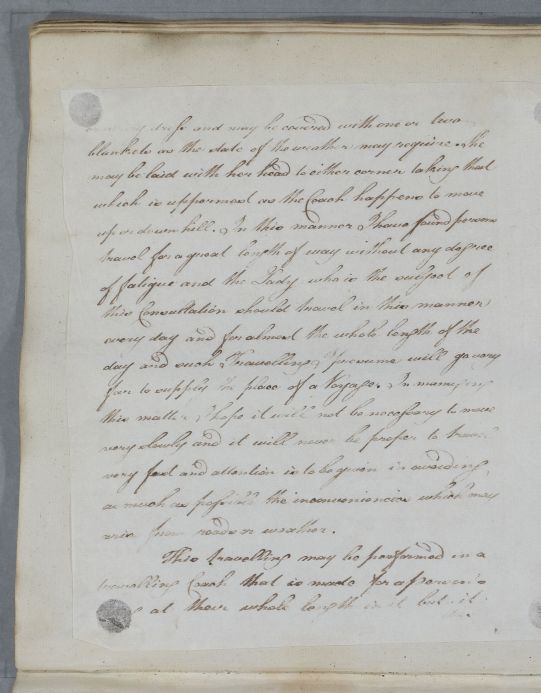 dress and may be covered with one or two
blankets as the state of the weather may require she
may be laid with her head to either corner taking that
which is uppermost as the Coach happens to move
up or down hill. In this manner I have found persons
travel for a great length of way without any degree
of fatigue and the Lady who is the subject of
this Consultation should travel in this manner
every day and for almost the whole length of the
day and such Travelling I presume will go very
far to supply the place of a Voyage. In managing
this matter I hope it will not be necessary to move
very slowly and it will never be proper to travel
very fast and attention is to be given in avoiding
as much as possible the inconveniencies which may
arise from roads or weather.
This travelling may be performed in a
travelling Coach that is made for a person's
at their whole length in it but it